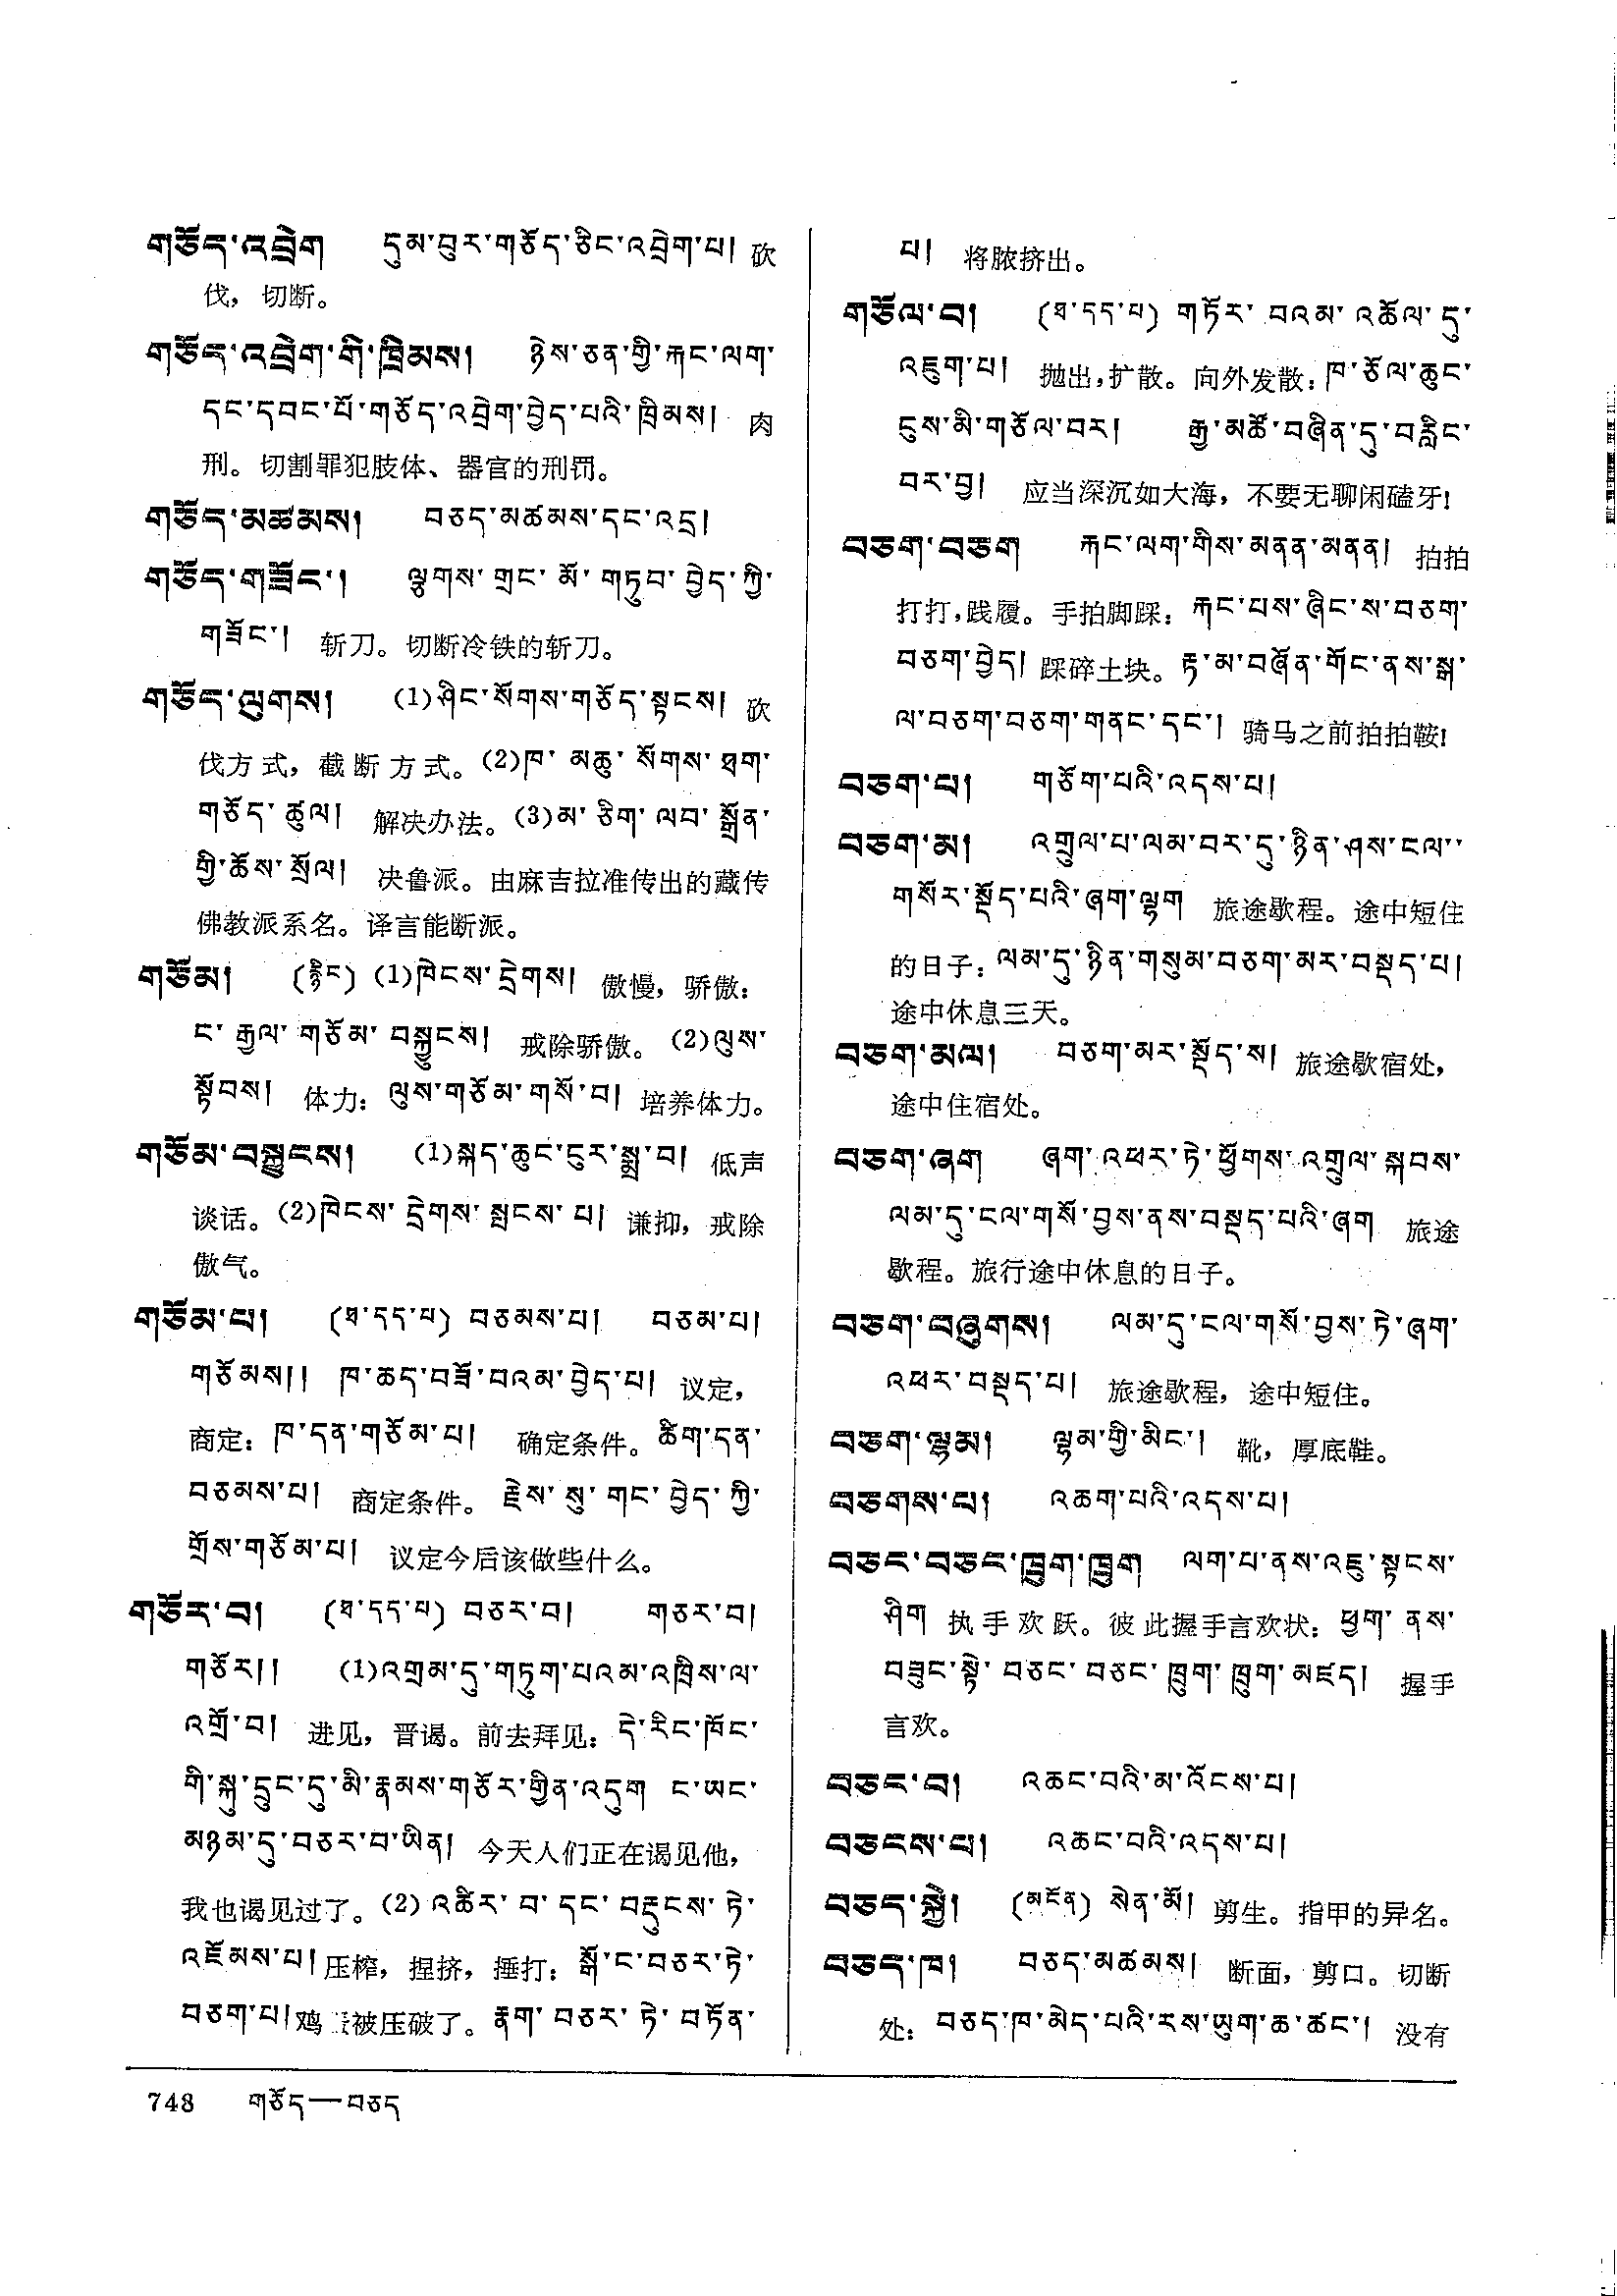 གཅོད་འབྲེག དུམ་བུར་གཅོད་ཅིང་འབྲེག་པ། 砍
伐，切断。
གཅོད་འབྲེག་གི་ཁྲིམས། ཉེས་ཅན་གྱི་རྐང་ལག་
དང་དབང་པོ་གཅོད་འབྲེག་བྱེད་པའི་ཁྲིམས། 肉
刑。切割罪犯肢体、器官的刑罚。
གཅོད་མཚམས། བཅད་མཚམས་དང་འདྲ།
གཅོད་གཟོང་། ལྕགས་གྲང་མོ་གཏུབ་བྱེད་ཀྱི་
གཟོང་། 斩刀。切断冷铁的斩刀。
གཅོད་ལུགས། (1)ཤིང་སོགས་གཅོད་སྟངས། 砍
伐方式，截断方式。(2)ཁ་མཆུ་སོགས་ཐག་
གཅོད་ཚུལ། 解决办法。(3)མ་ཅིག་ལབ་སྒྲོན་
གྱི་ཆོས་སྲོལ། 决鲁派。由麻吉拉准传出的藏传
佛教派系名。译言能断派。
གཅོམ། (རྙིང) (1)ཁེངས་དྲེགས། 傲慢，骄傲：
ང་རྒྱལ་གཅོམ་བསྐྱུངས། 戒除骄傲。(2)ལུས་
སྟོབས། 体力：ལུས་གཅོམ་གསོ་བ། 培养体力。
གཅོམ་བསྐྱུངས། (1)སྐད་ཆུང་ངུར་སྨྲ་བ། 低声
谈话。(2)ཁེངས་དྲེགས་སྤངས་པ། 谦抑，戒除
傲气。
གཅོམ་པ། (ཐ་དད་པ) བཅམས་པ། བཅམ་པ།
གཅོམས།། ཁ་ཆད་བཟོ་བའམ་བྱེད་པ། 议定，
商定：ཁ་དན་གཅོམ་པ། 确定条件。ཚིག་དན་
བཅམས་པ། 商定条件。རྗེས་སུ་གང་བྱེད་ཀྱི་
གྲོས་གཅོམ་པ། 议定今后该做些什么。
གཅོར་བ། (ཐ་དད་པ) བཅར་བ། གཅར་བ།
གཅོར།། (1)འགྲམ་དུ་གཏུག་པའམ་འཁྲིས་ལ་
འགྲོ་བ། 进见，晋谒。前去拜见：དེ་རིང་ཁོང་
གི་སྐུ་དྲུང་དུ་མི་རྣམས་གཅོར་གྱིན་འདུག ང་ཡང་
མཉམ་དུ་བཅར་བ་ཡིན། 今天人们正在谒见他，
我也谒见过了。(2)འཚིར་བ་དང་བརྡུངས་ཏེ་
འཇོམས་པ། 压榨，捏挤，捶打：སྒོ་ང་བཅར་ཏེ་
བཅག་པ། 鸡蛋被压破了。རྣག་བཅར་ཏེ་བཏོན་
པ། 将脓挤出。
གཅོལ་བ། (ཐ་དད་པ) གཏོར་བའམ་འཆོལ་དུ་
འཇུག་པ། 抛出，扩散。向外发散：ཁ་ཅོལ་ཆུང་
ངུས་མི་གཅོལ་བར། རྒྱ་མཚོ་བཞིན་དུ་བརླིང་
བར་བྱ། 应当深沉如大海，不要无聊闲磕牙！
བཅག་བཅག རྐང་ལག་གིས་མནན་མནན། 拍拍
打打，践履。手拍脚踩：རྐང་པས་ཞིང་ས་བཅག་
བཅག་བྱེད། 踩碎土块。རྟ་མ་བཞོན་གོང་ནས་སྒ་
ལ་བཅག་བཅག་གནང་དང་། 骑马之前拍拍鞍！
བཅག་པ། གཅོག་པའི་འདས་པ།
བཅག་མ། འགྲུལ་པ་ལམ་བར་དུ་ཉིན་ཤས་ངལ་་
གསོར་སྡོད་པའི་ཞག་ལྷག 旅途歇程。途中短住
的日子：ལམ་དུ་ཉིན་གསུམ་བཅག་མར་བསྡད་པ།
途中休息三天。
བཅག་མལ། བཅག་མར་སྡོད་ས། 旅途歇宿处，
途中住宿处。
བཅག་ཞག ཞག་འཕར་ཏེ་ཕྱོགས་འགྲུལ་སྐབས་
ལམ་དུ་ངལ་གསོ་བྱས་ནས་བསྡད་པའི་ཞག 旅途
歇程。旅行途中休息的日子。
བཅག་བཞུགས། ལམ་དུ་ངལ་གསོ་བྱས་ཏེ་ཞག་
འཕར་བསྡད་པ། 旅途歇程，途中短住。
བཅག་ལྷམ། ལྷམ་གྱི་མིང་། 靴，厚底鞋。
བཅགས་པ། འཆག་པའི་འདས་པ།
བཅང་བཅང་ཁྲུག་ཁྲུག ལག་པ་ནས་འཇུ་སྟངས་
ཤིག 执手欢跃。彼此握手言欢状：ཕྱག་ནས་
བཟུང་སྟེ་བཅང་བཅང་ཁྲུག་ཁྲུག་མཛད། 握手
言欢。
བཅང་བ། འཆང་བའི་མ་འོངས་པ།
བཅངས་པ། འཆང་བའི་འདས་པ།
བཅད་སྐྱེ། (མངོན) སེན་མོ། 剪生。指甲的异名。
བཅད་ཁ། བཅད་མཚམས། 断面，剪口。切断
处：བཅད་ཁ་མེད་པའི་རས་ཡུག་ཆ་ཚང་། 没有
748 གཅོད—བཅད